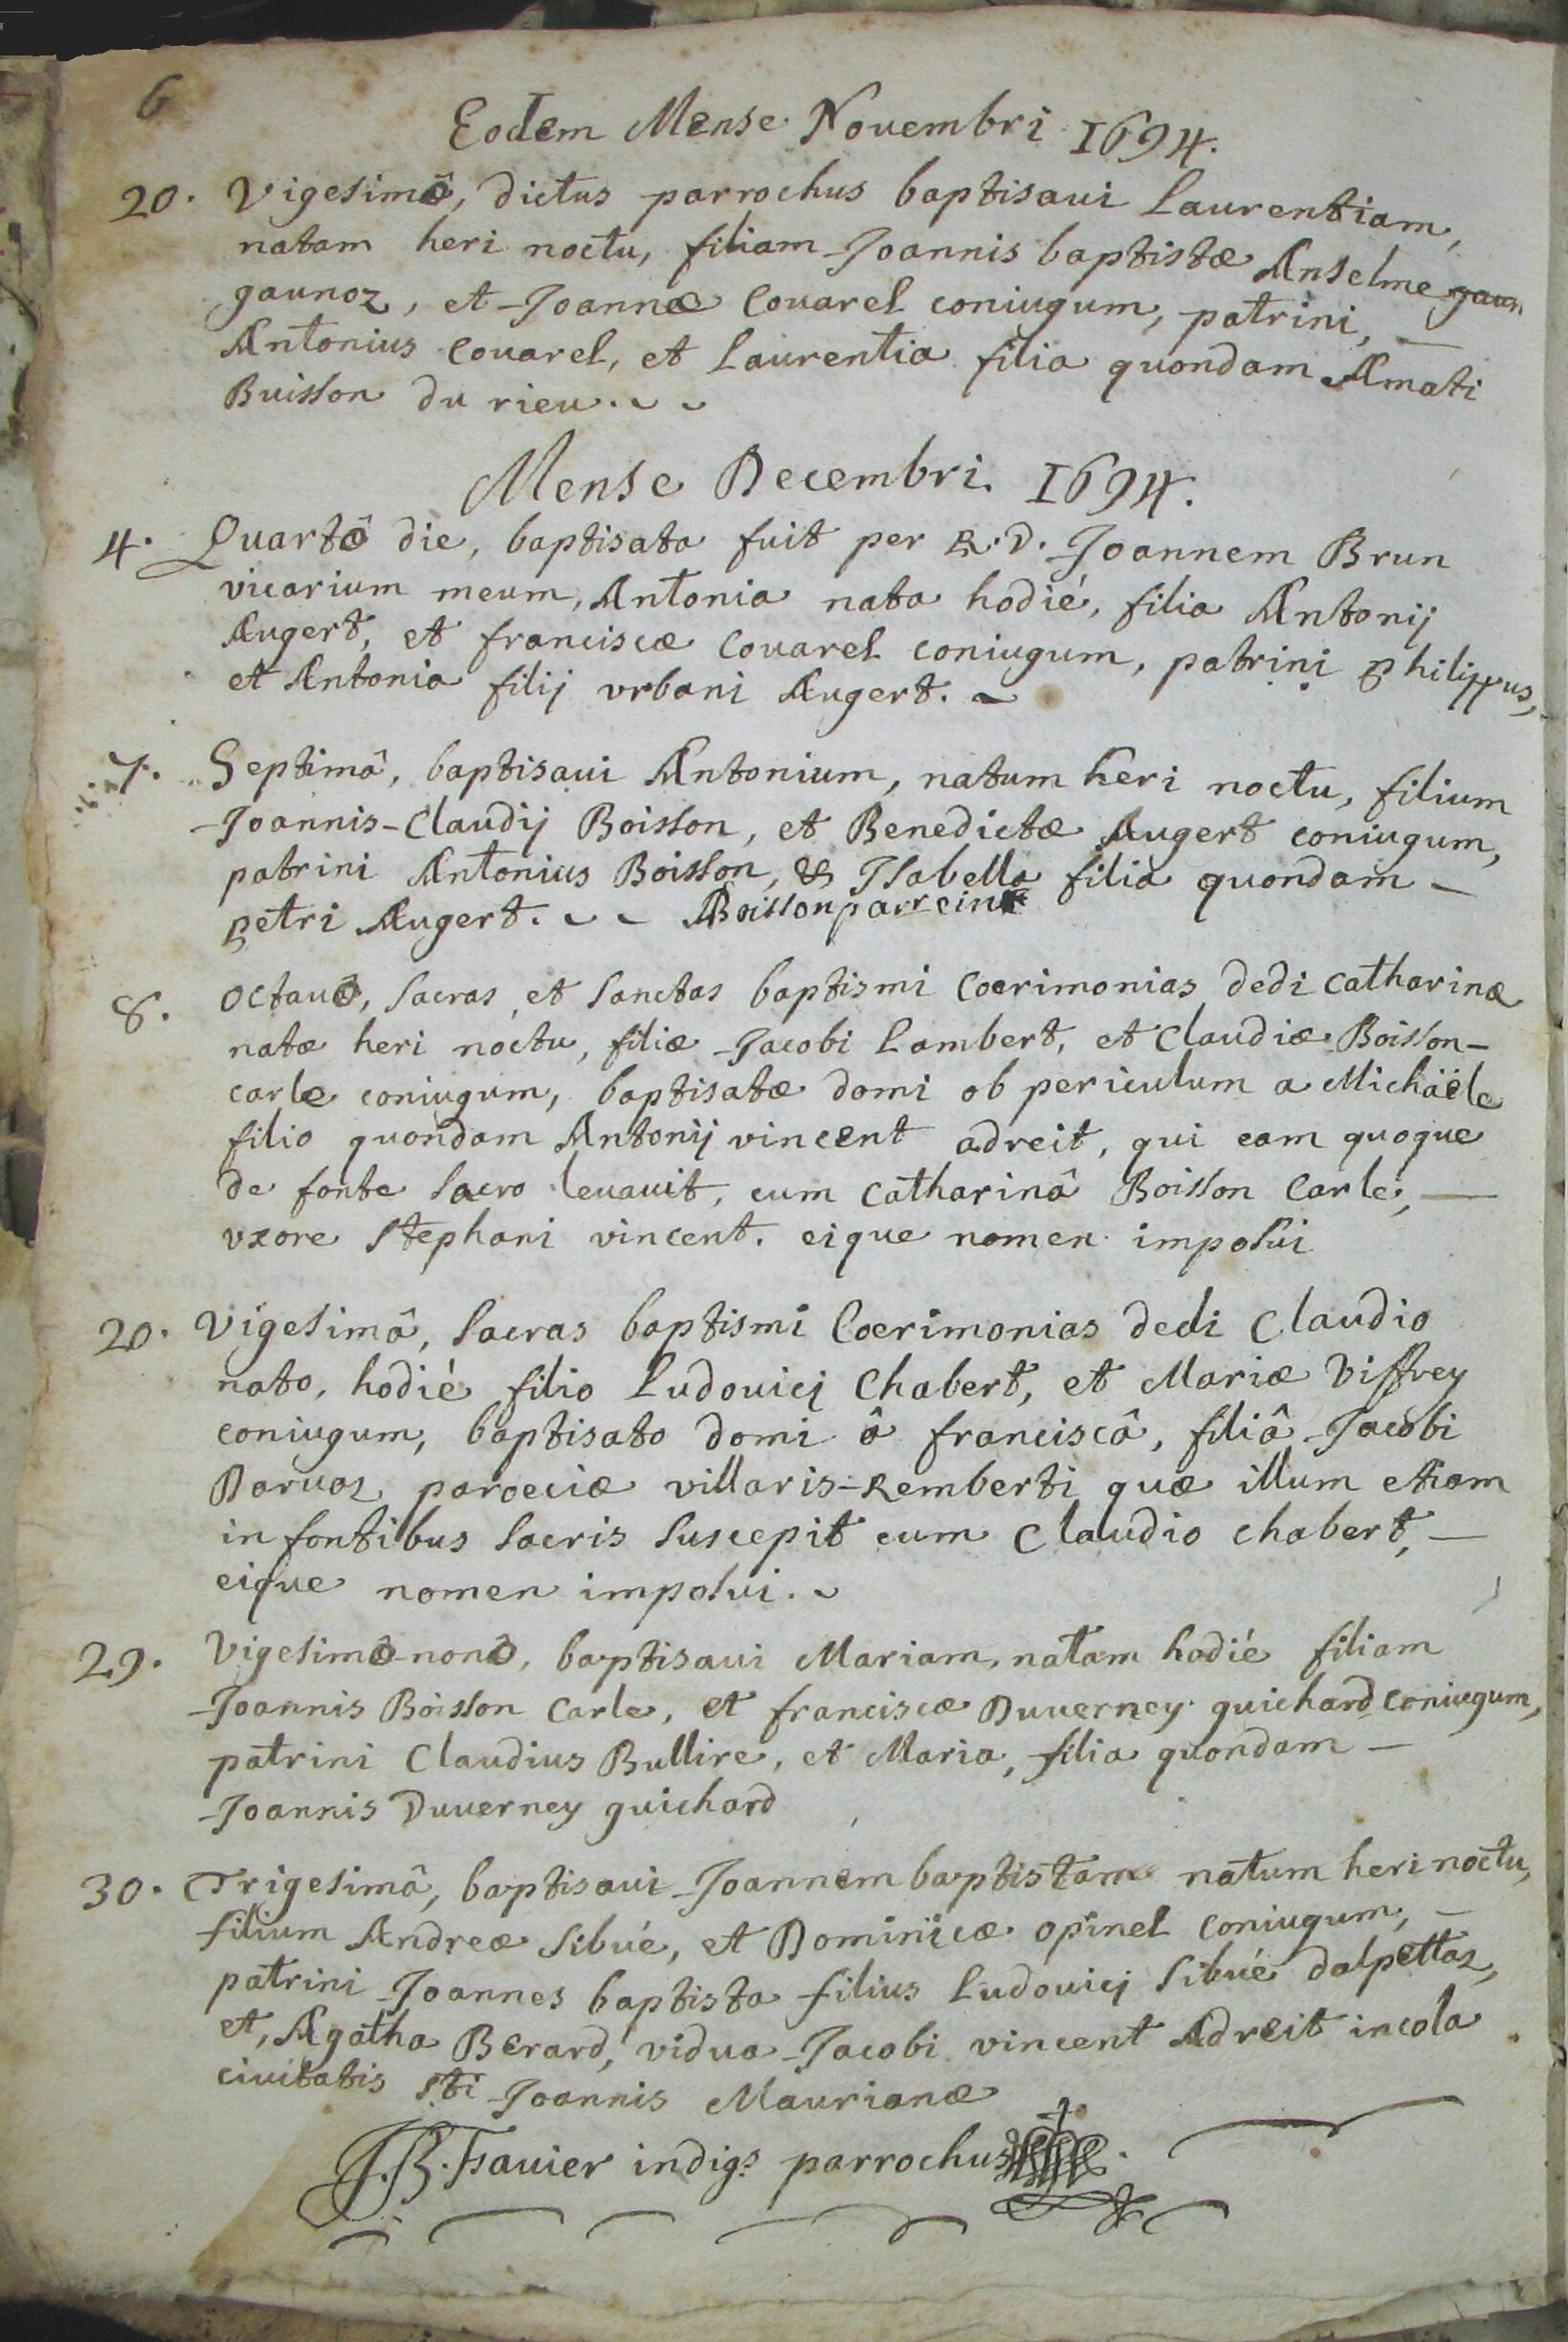 6
Eodem Mense Nouembri 1694.
20. Vigesimâ, dictus parrochus baptisaui Laurentiam,
natam heri noctu, filiam Joannis baptistæ Anselme gaun
gaunoz, et Joannæ Couarel coniugum, patrini, —
Antonius Couarel, et Laurentia filia quondam Amati
Buisson du rieu.
Mense Decembri 1694.
4. Quartâ die, baptisata fuit per R.D. Joannem Brun
vicarium meum, Antonia nata hodié, filia Antonij
Augert, et franciscæ Couarel coniugum, patrini philippus,
et Antonia filij vrbani Augert.
7. Septimâ, baptisaui Antonium, natum heri noctu, filium
Joannis-Claudij Boisson, et Benedictæ Augert coniugum,
patrini Antonius Boisson, & Isabella filia quondam —
petri Augert. ABoisson parrein
8. octauâ, sacras et sanctas baptismi Coerimonias dedi catharinæ
natæ heri noctu, filiæ Jacobi Lambert, et Claudiæ Boisson-
carle coniugum, baptisatæ domi ob periculum a Michaële
filio quondam Antonij vincent adreit, qui eam quoque
de fonte sacro leuauit, cum catharinâ Boisson Carle, —
vxore stephani vincent. eique nomen imposui
20. Vigesimâ, sacras baptismi Coerimonias dedi Claudio
nato, hodié filio Ludouici Chabert, et Mariæ Viffrey
coniugum, baptisato domi â franciscâ, filiâ Jacobi
Daruoz paroeciæ villaris-Remberti quæ illum etiam
in fontibus sacris suscepit cum Claudio chabert, —
eique nomen imposui.
29. Vigesimâ-nonâ, baptisaui Mariam, natam hodié filiam
Joannis Boisson Carle, et franciscæ Duuerney guichard coniugum,
patrini Claudius Bullire, et Maria, filia quondam —
Joannis Duuerney guichard
30. Trigesimâ, baptisaui Joannem baptistam natum heri noctu,
filium Andreæ Sibué, et Dominicæ opinel coniugum, —
patrini Joannes baptista filius Ludouici Sibué dalpettaz,
et, Agatha Berard, vidua Jacobi vincent Adreit incola
ciuitatis Sti Joannis Maurianæ
J.B. Tsauier indigs parrochus